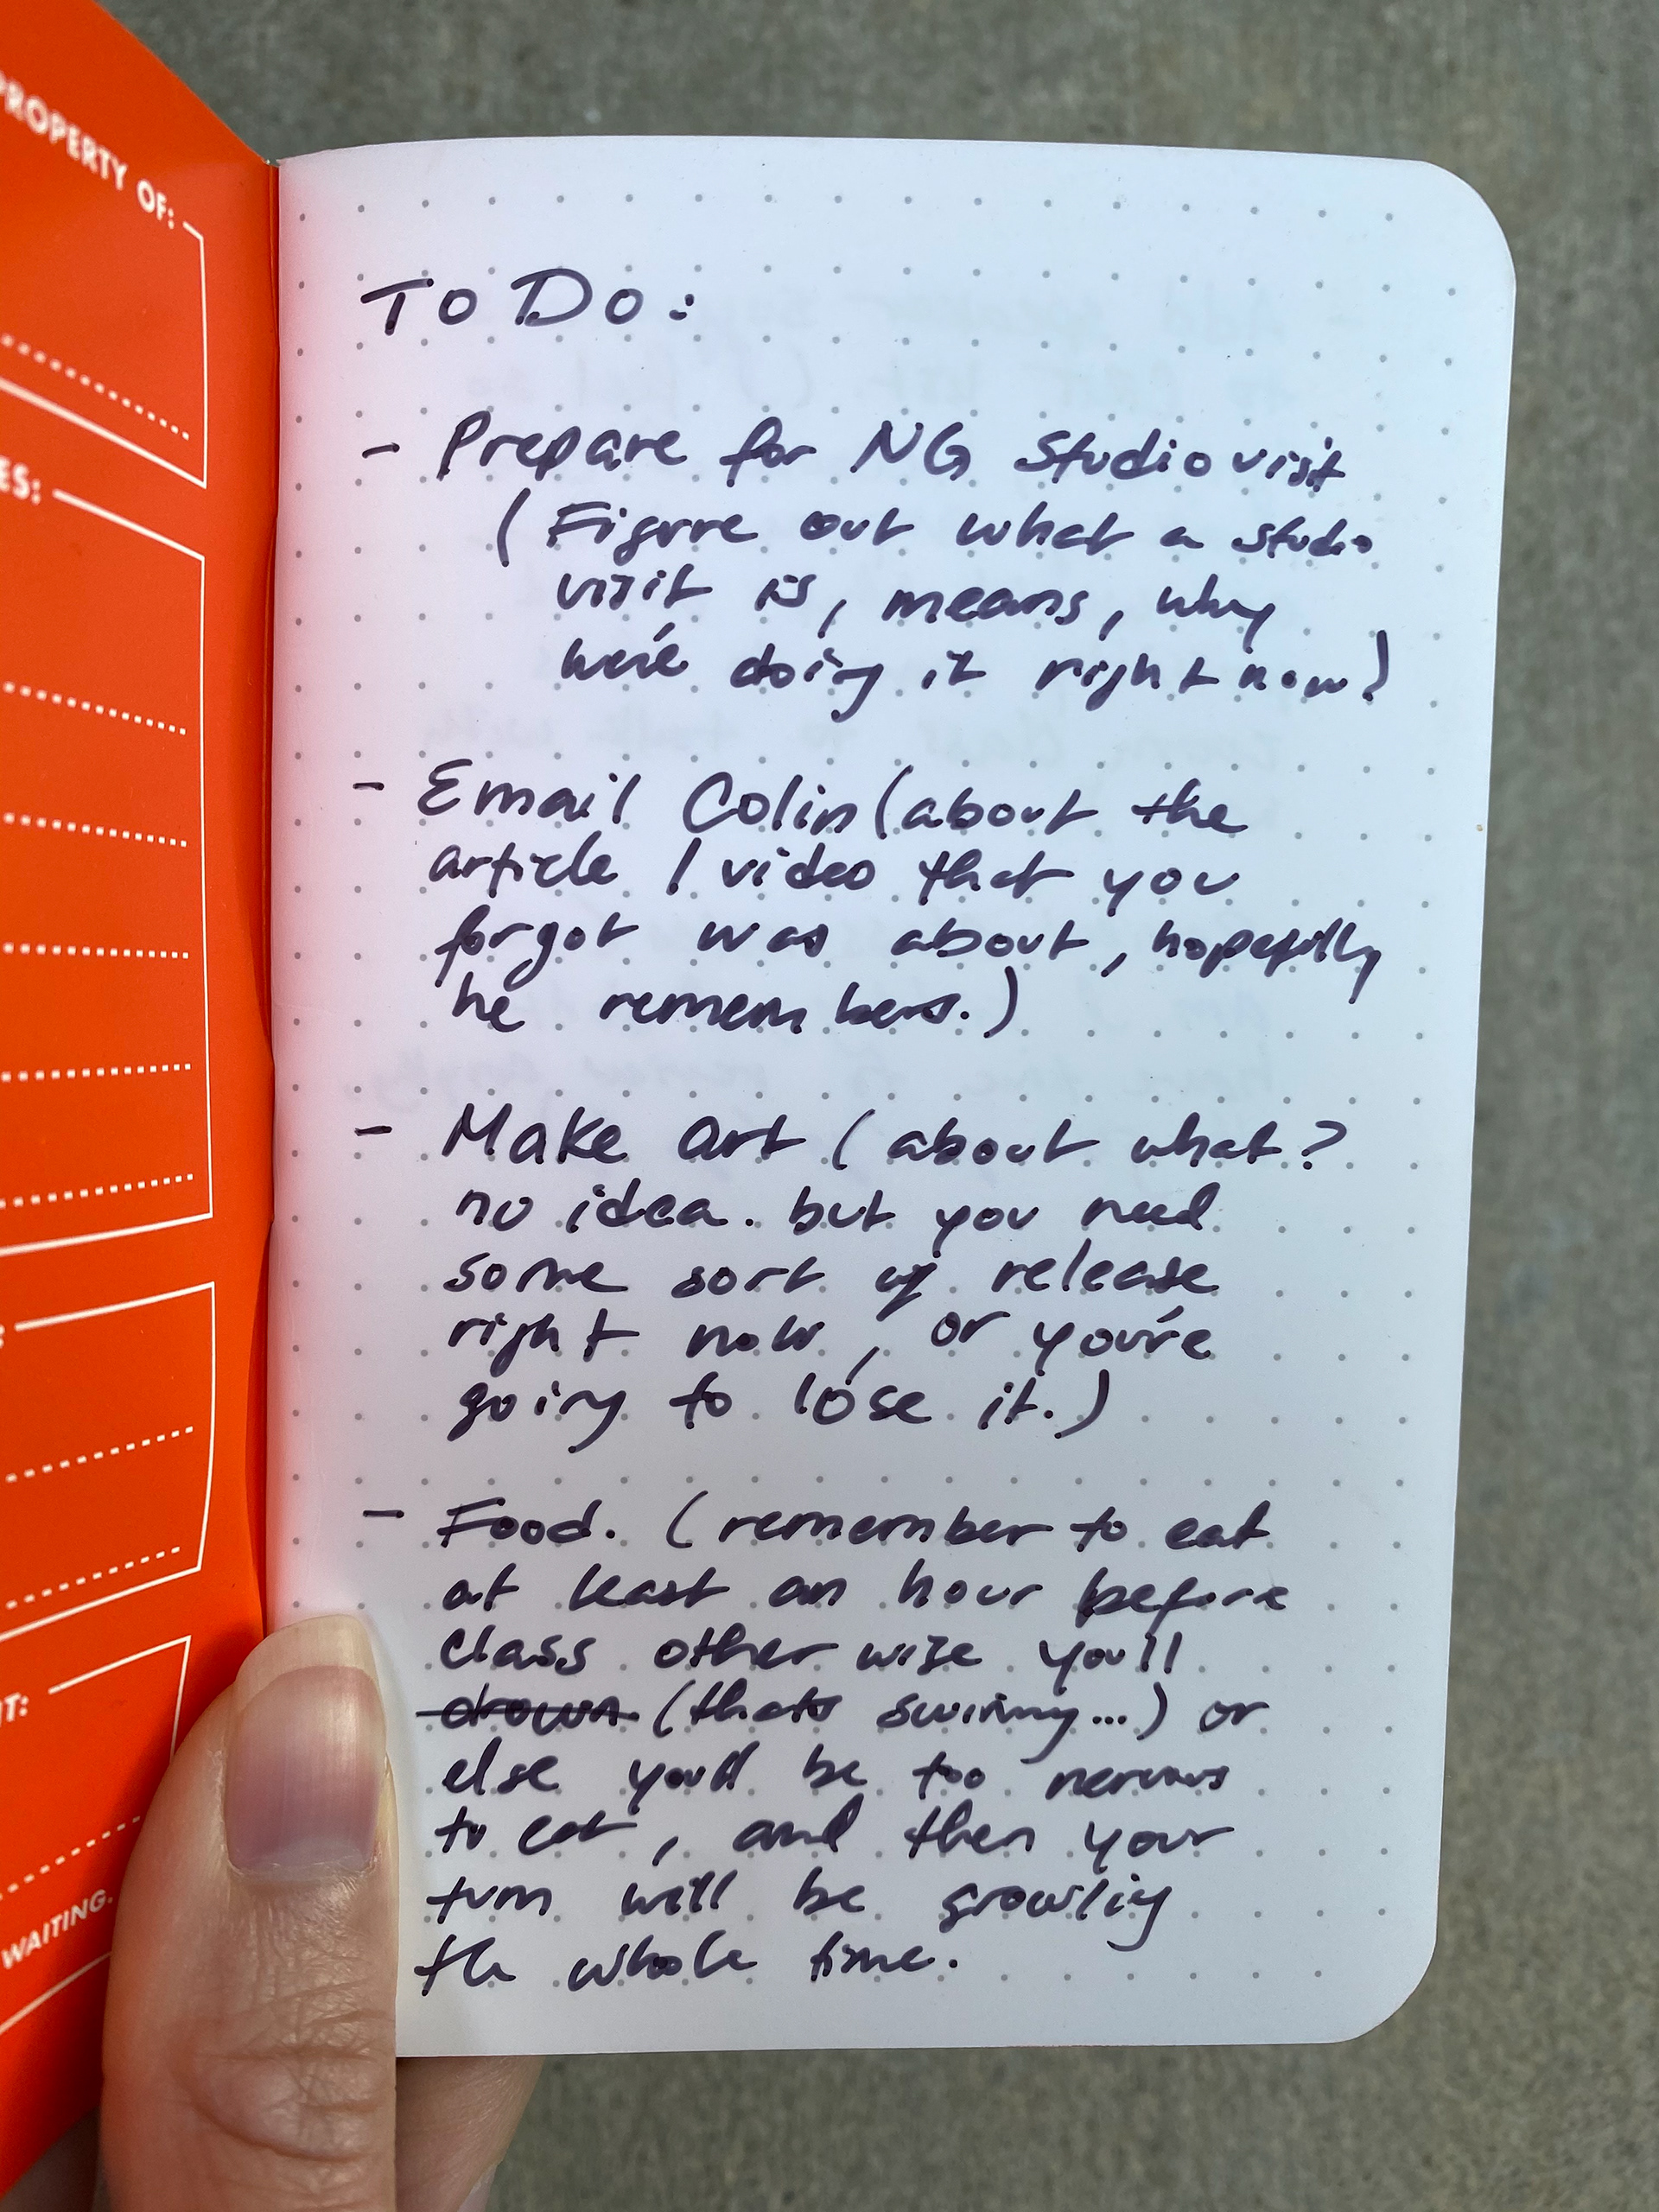 PROPERTY OF:
ES:
IT:
WAITING.
To Do:
- Prepare for NG Studio visit
(Figure out what a studio
visit is, means, why
we're doing it right now)
- Email Colin (about the
article / video that you
forgot was about, hopefully
he remembers.)
- Make art (about what?
no idea. but you need
some sort of release
right now, or you're
going to lose it.)
- Food. (remember to eat
at least an hour before
class other wise you'll
drown (thats swimming...) or
else you'll be too nervous
to eat, and then your
tum will be growling
the whole time.